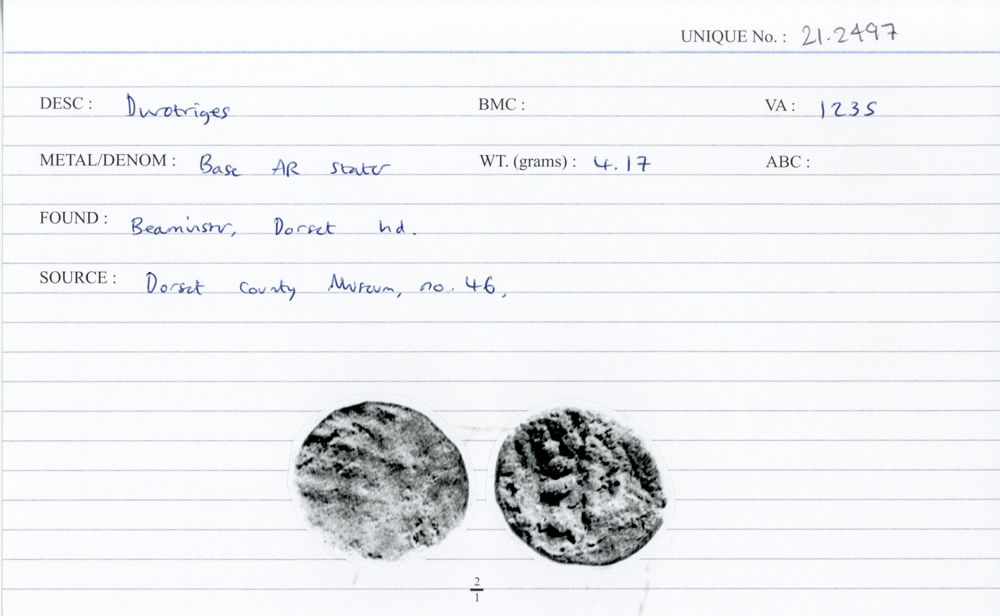 UNIQUE No. : 21.2497
DESC : Durotriges BMC : VA : 1235
METAL/DENOM : Base AR stater WT. (grams) : 4.17 ABC :
FOUND : Beaminster, Dorset hd.
SOURCE : Dorset County Museum, no. 46,
2
1